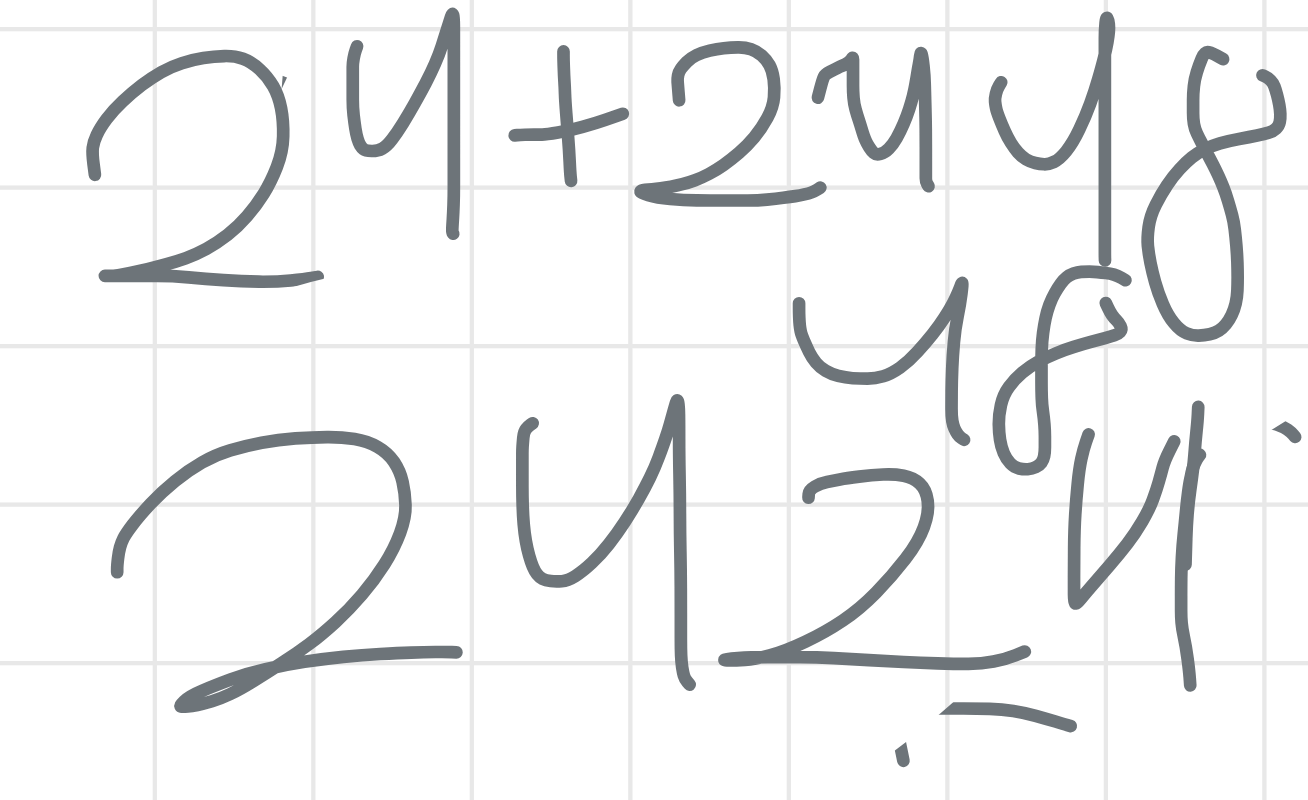 24+24 48
48
24 24